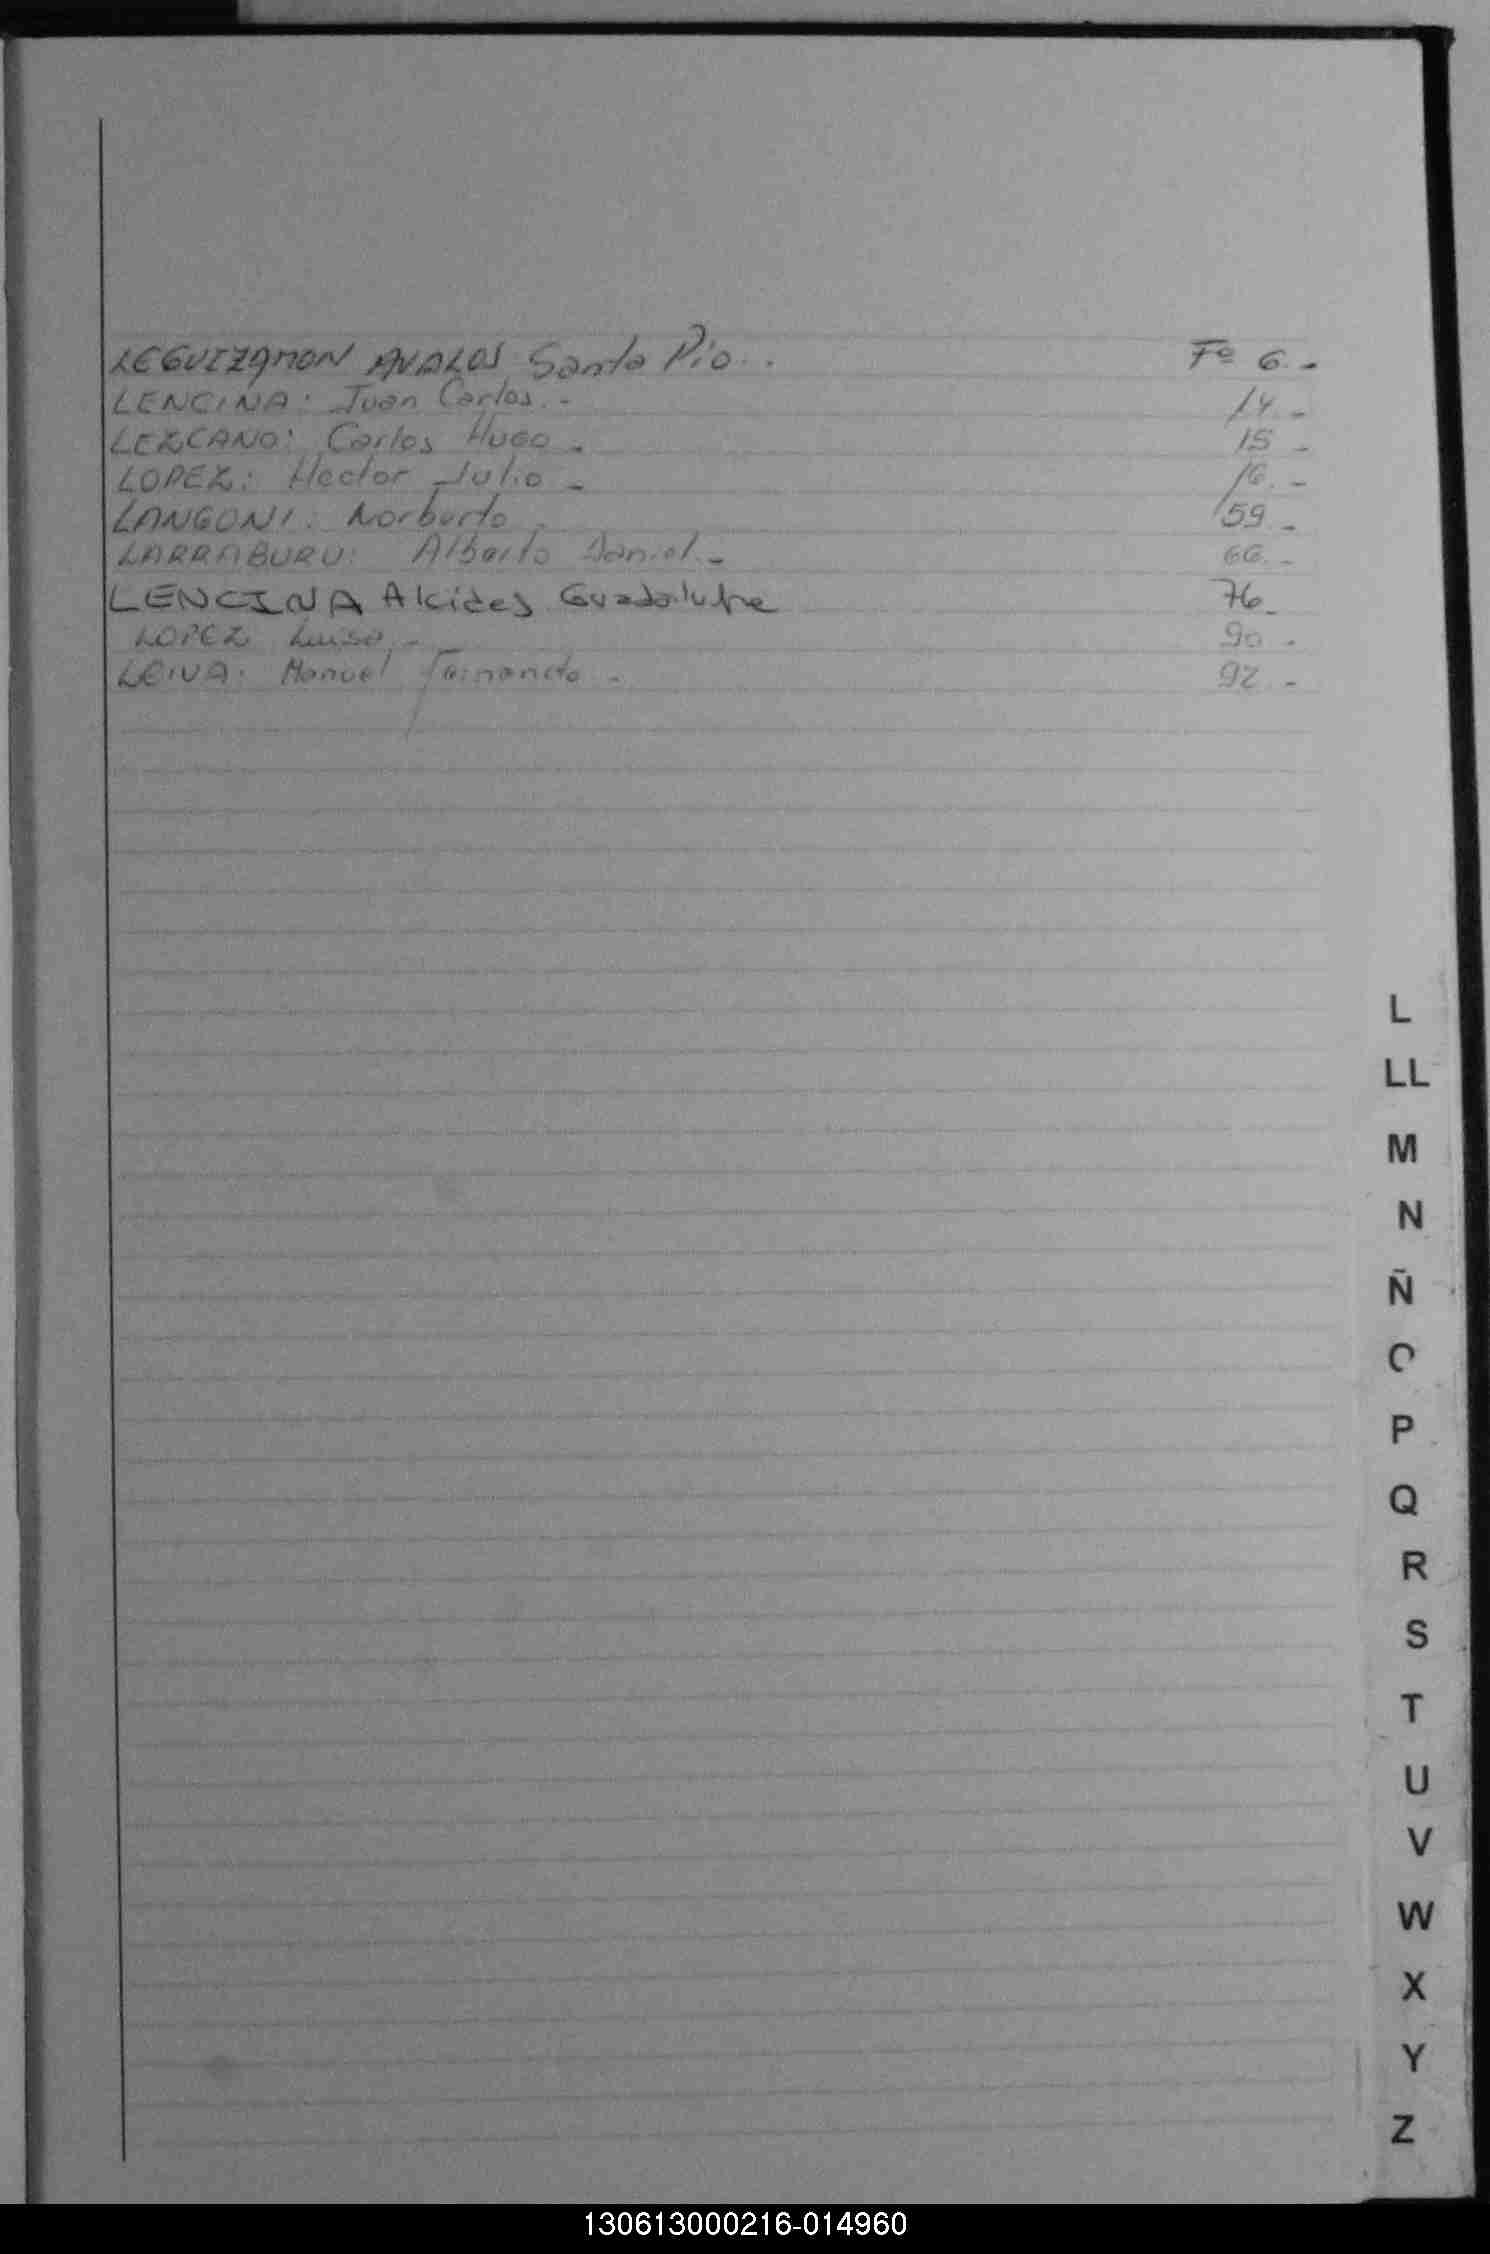 LEGUIZAMON AVALOS Santo Pio.. Fº 6.-
LENCINA: Juan Carlos.- 14.-
LEZCANO: Carlos Hugo.- 15.-
LOPEZ: Hector Julio.- 16.-
LANGONI. Norberto. 59.-
LARRABURU: Alberto Daniel.- 66.-
LENCINA Alcides Guadalupe 76-
LOPEZ Luisa.- 90.-
LEIVA: Manuel Fernando.- 92.-
L
LL
M
N
Ñ
O
P
Q
R
S
T
U
V
W
X
Y
Z
130613000216-014960